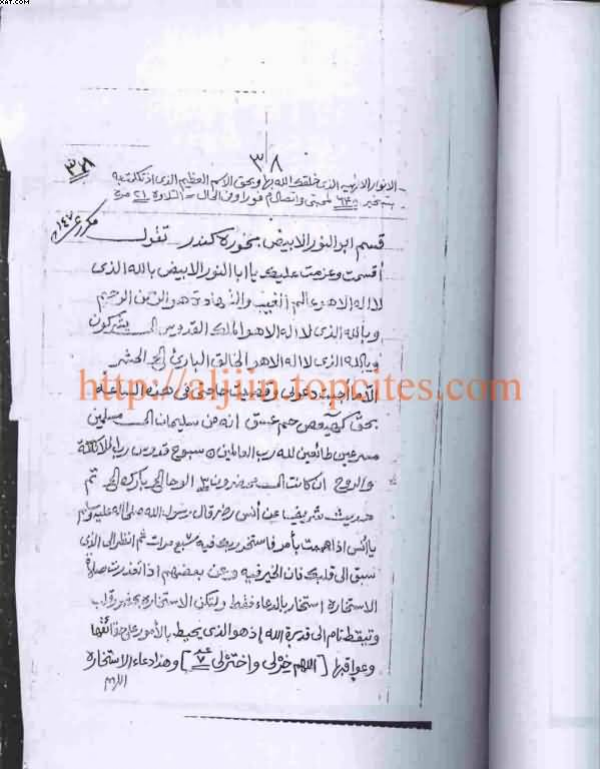 xat.com
٣٨
٣٨
الانوار الالهيه الذى خلقك الله بها وبحق الاسم العظيم الذى اذ تكلمت به
فورا وفى الحال = التلاوة ٢١ مرة
قسم ابو النور الابيض بخوره كندر تقول
مكرر ١٤٧
أقسمت وعزمت عليك يا ابا النور الابيض بالله الذى
لا اله الا هو عالم الغيب والشهادة هو الرحمن الرحيم
وبالله الذى لا اله الا هو الملك القدوس الى يشركون
وبالله الذى لا اله الا هو الخالق البارئ إلى الحشر
الا ما اجبت دعوتى وقضيت حاجتى فى هذه الساعه
http://aljiin.topcites.com
بحق كهيعص حم عسق انه من سليمان الى مسلمين
مسرعين طائعين لله رب العالمين سبوح قدوس رب الملائكة
والروح ان كانت الى محضرون ٣ الوحا إلى بارك إلى تم
حديث شريف عن أنس رضى قال رسول الله صلى اله عليه وسلم
يا أنس اذا هممت بأمر فاستخر ربك فيه سبع مرات ثم انظر الى الذى
سبق الى قلبك فان الخير فيه وعن بعضهم اذا تعذرت صلاة
الاستخارة استخار بالدعاء فقط ولتكن الاستخاره بحضور قلب
وتيقظ تام الى قدرة الله اذ هو الذى يحيط بالأمور على حقائقها
وعواقبها [اللهم خرلى واخترلى ٧] وهذا دعاء الاستخاره
اللهم